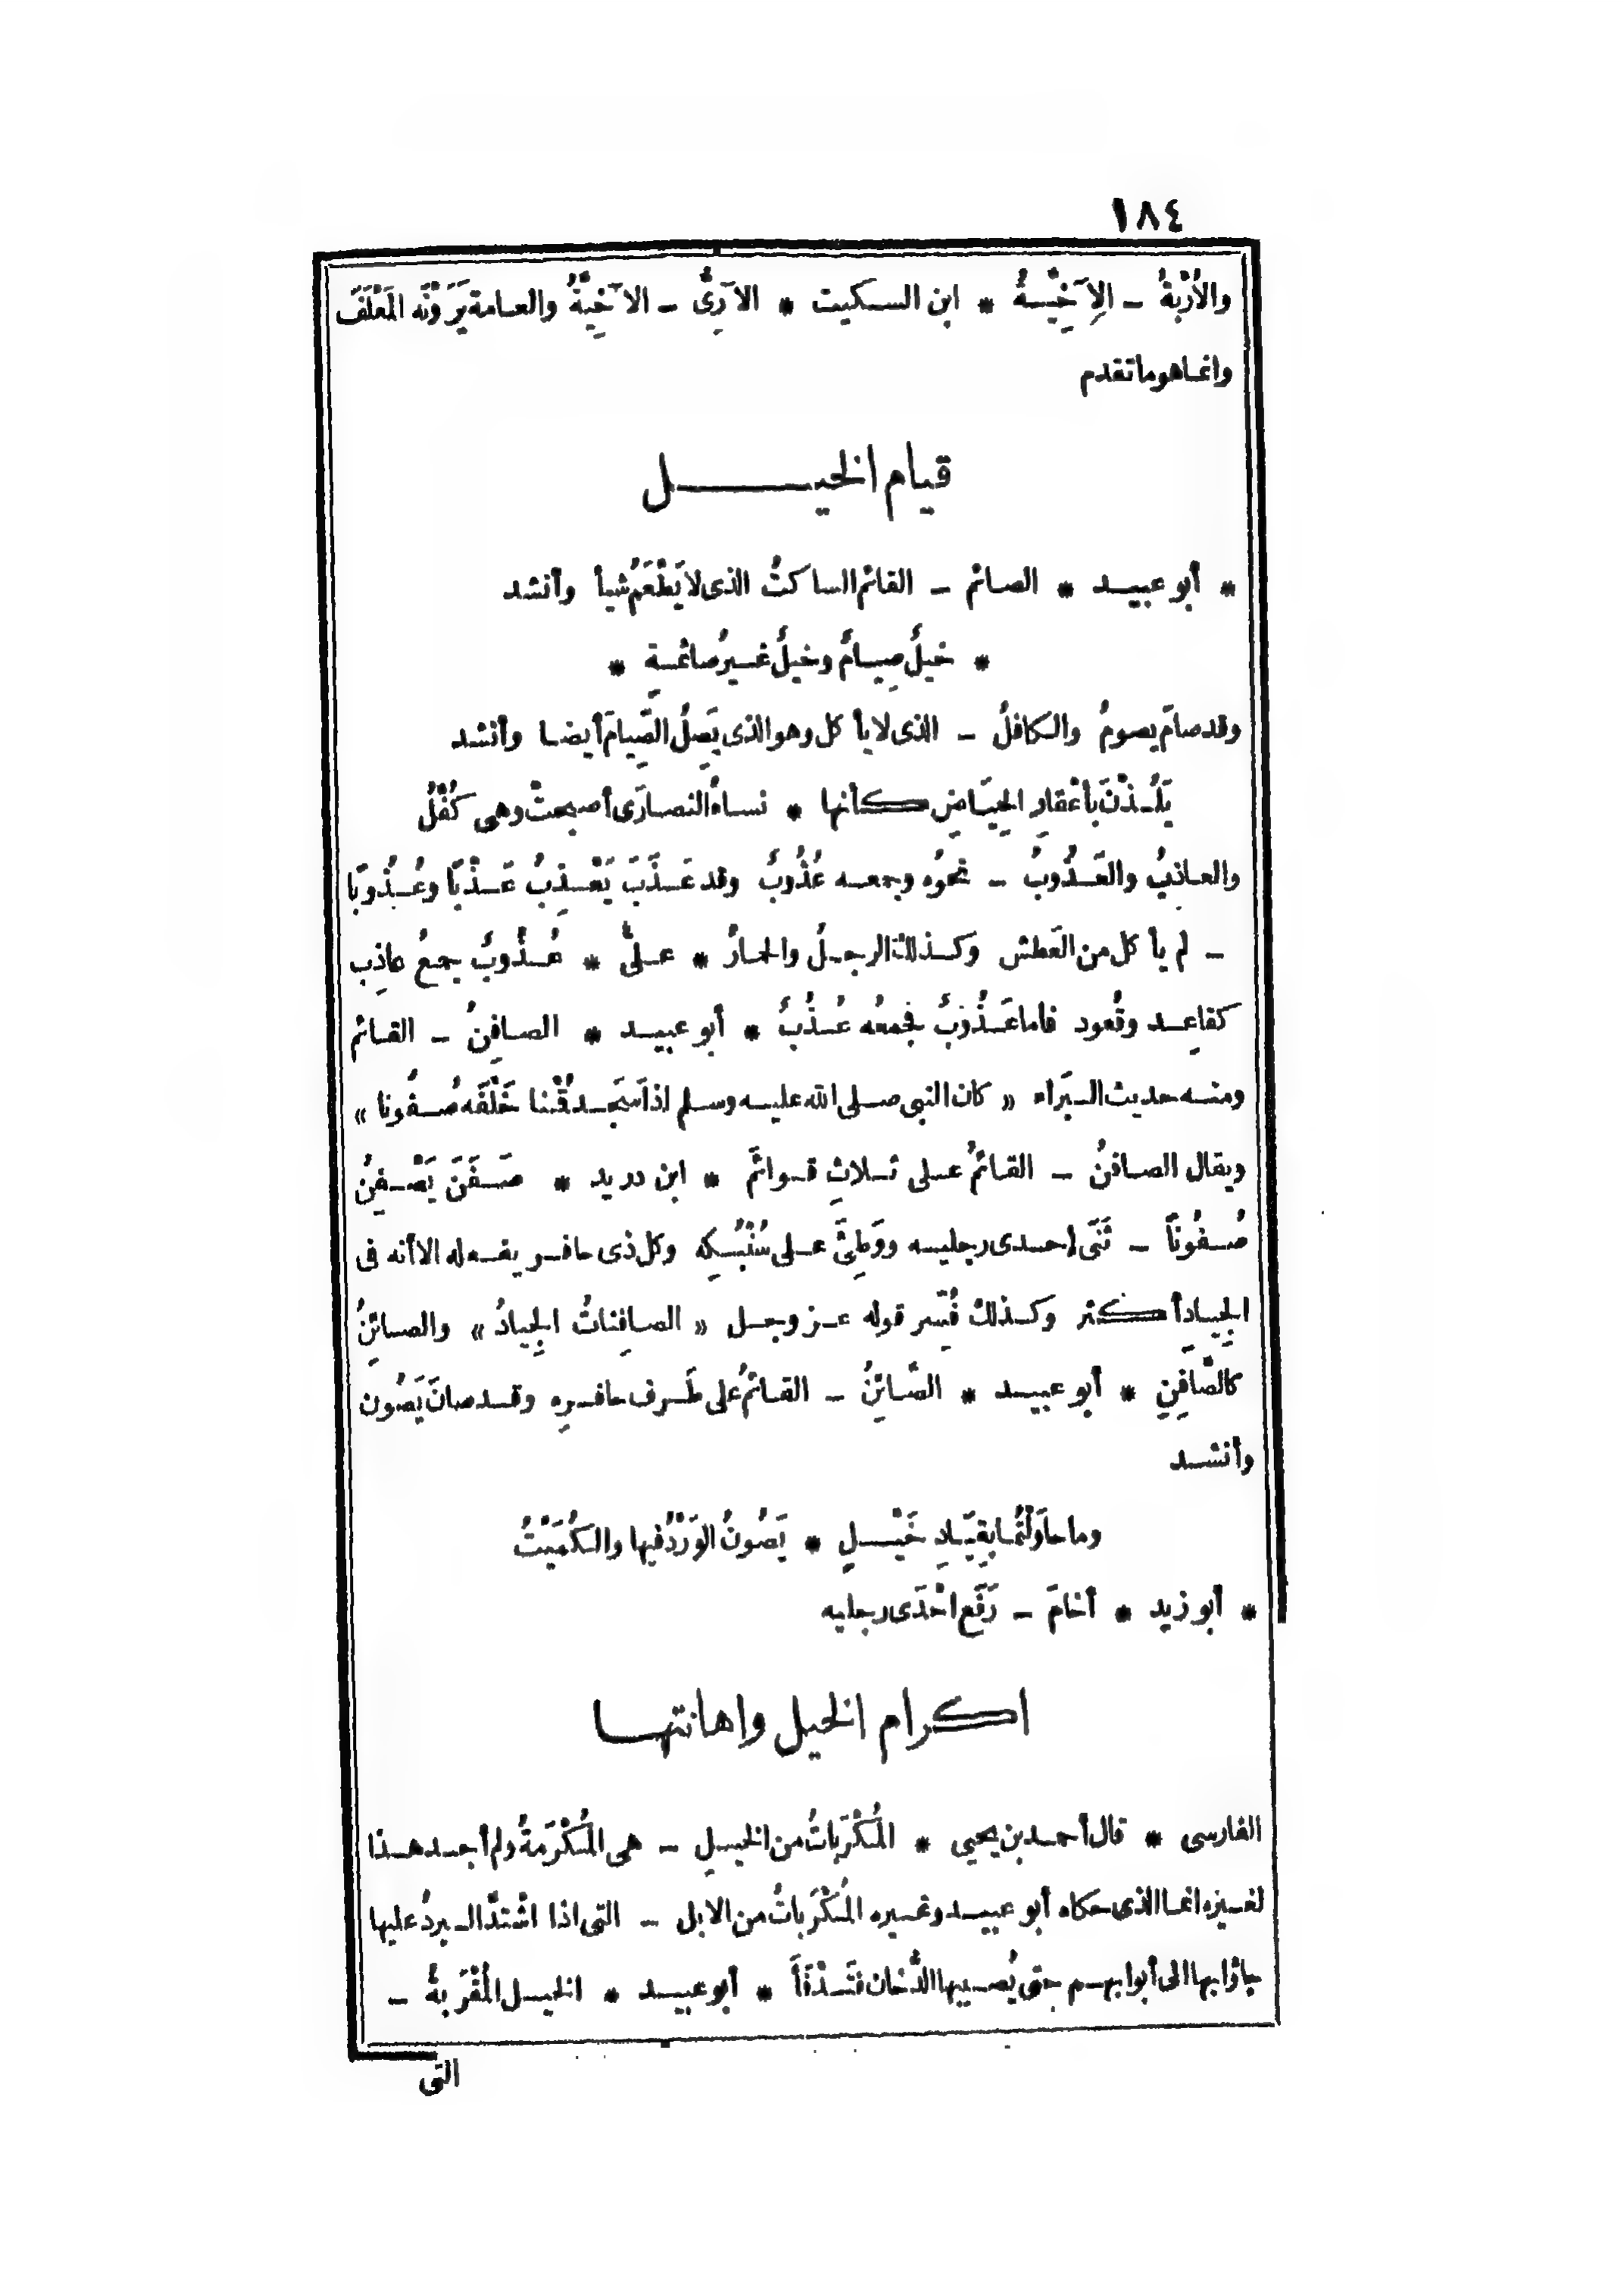 ١٨٤
والأُرْبةُ ــ الآخِيَّةُ * ابن السكيت * الآرِىُّ ــ الآخِيَّةُ والعامة يَرَوْنَه المَعْلَفَ
وانما هو ما تقدم
قيام الخيل
* أبو عبيد * الصائم ــ القائم الساكتُ الذى لا يَطْعَمُ شيأ وأنشد
* خيلٌ صِيامٌ وخيلٌ غيرُ صائمةٍ *
وقد صامَ يصومُ والكافلُ ــ الذى لا يأكل وهو الذى يَصِلُ الصِّيامَ أيضا وأنشد
يَلُذْنَ بأعْقارِ الحِيَاضِ كأنها * نساءُ النصارَى أصبحتْ وهى كُفَّلُ
والعاذِبُ والعَذُوبُ ــ نحوُه وجمعه عُذُوبٌ وقد عَذَبَ يَعْذِبُ عَذْبًا وعُذُوبًا
ــ لم يأكل من العَطش وكذلك الرجلُ والحمارُ * علىّ * عُذُوبٌ جمعُ عاذِب
كقاعِد وقُعود فاما عَذُوبٌ فجمعُه عُذُبٌ * أبو عبيد * الصافِنُ ــ القائم
ومنه حديث البَراء « كان النبى صلى الله عليه وسلم اذا سَجَد قُمْنا خَلْفَه صُفُونا »
ويقال الصافنُ ــ القائمُ على ثلاثِ قوائمَ * ابن دريد * صَفَنَ يَصْفِنُ
صُفُونًا ــ ثَنَى إحدى رجليه ووَطِئَ على سُنْبُكِه وكل ذى حافر يفعله الا أنه فى
الجِيادِ أكثر وكذلك فُسِّر قوله عز وجل « الصافِناتُ الجِيادُ » والصائِنُ
كالصَّافِنِ * أبو عبيد * الصَّائِنُ ــ القائمُ على طَرف حافرِه وقد صانَ يَصُون
وأنشد
وما حاوَلْتُما بقِيَادِ خَيْلٍ * يَصُونُ الوَرْدُ فيها والكُمَيْتُ
* أبو زيد * أخامَ ــ رَفَع احْدَى رجليه
اكرام الخيل واهانتها
الفارسى * قال أحمد بن يحيى * المُكْرَباتُ من الخيلِ ــ هى المُكْرَمةُ ولم أجد هذا
لغيره انما الذى حكاه أبو عبيد وغيره المُكْرَباتُ من الابل ــ التى اذا اشْتدَّ البردُ عليها
جاؤا بها الى أبوابهم حتى يُصيبها الدُّخان فتَدْفَأَ * أبو عبيد * الخيل المُقْرَبةُ ــ
التى